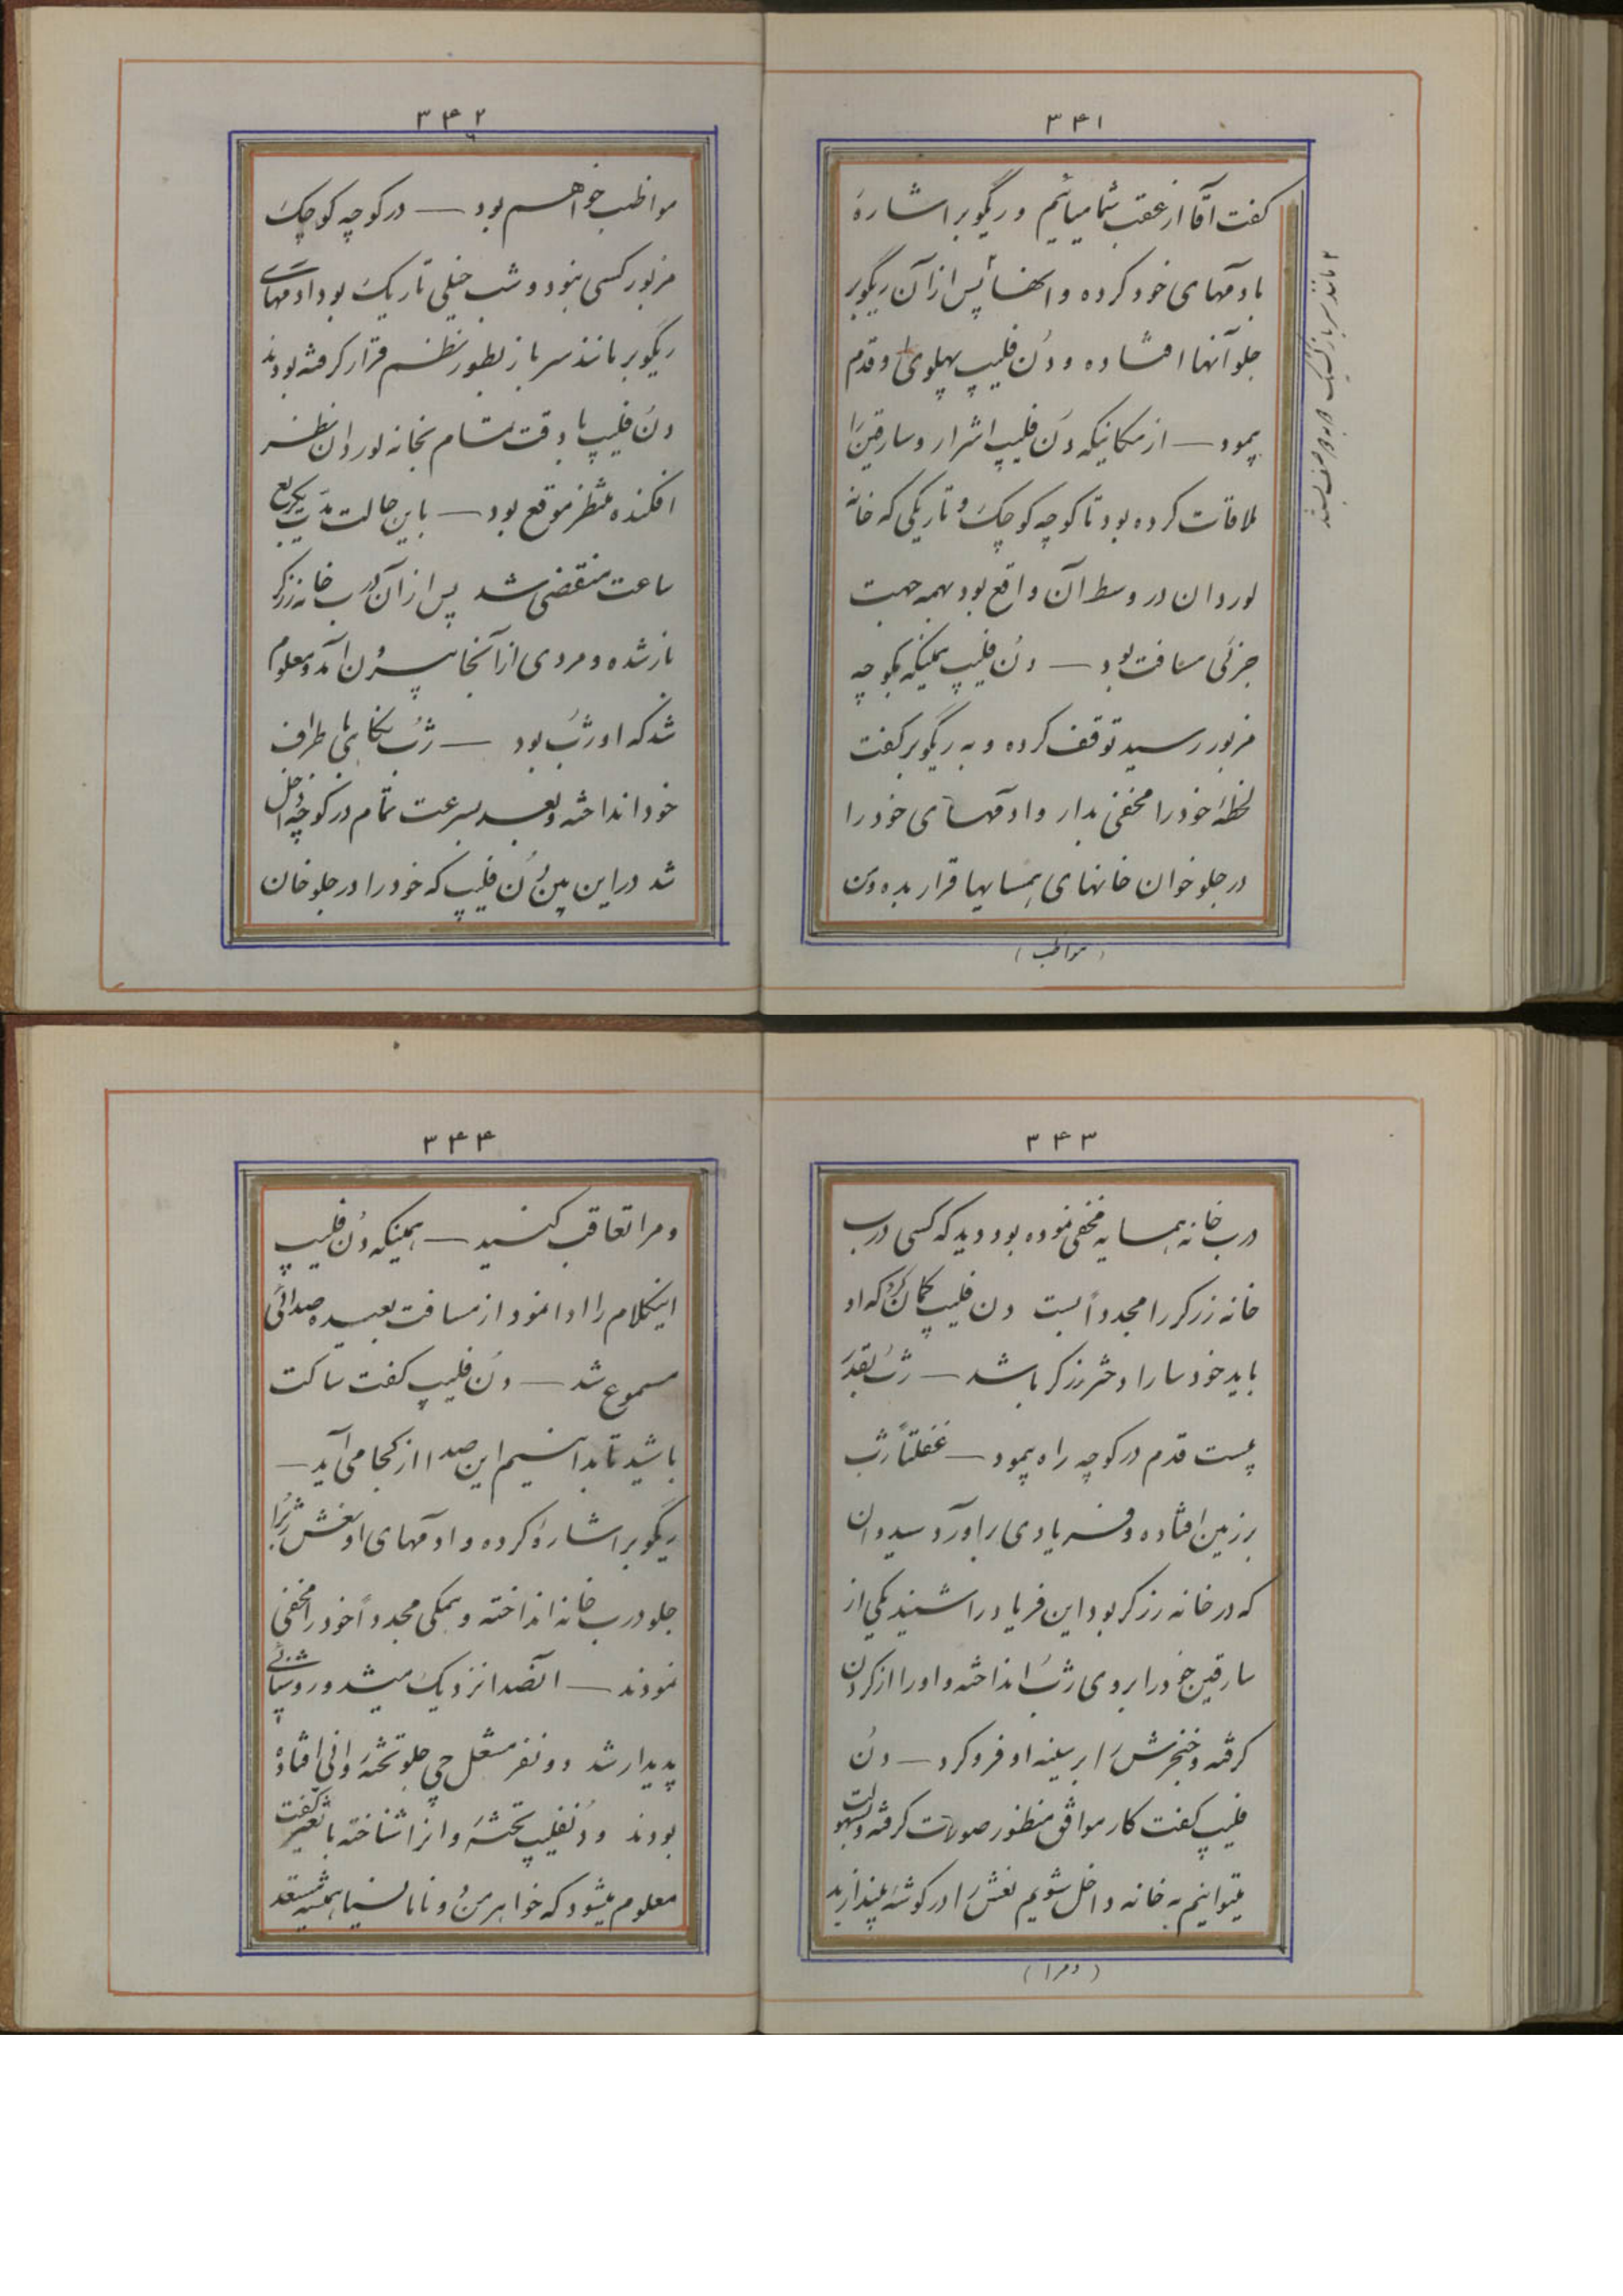 ۳۴۱
گفت آقا از عقب شما میائیم و ریگوبر اشارهٔ
بادمهای خود کرده و انها پس از آن ریگوبر
جلو آنها افتاده و دُن فلیپ پهلوی او قدم
پیمود — از مکانیکه دُن فلیپ اشرار و سارقین را
ملاقات کرده بود تا کوچه کوچک و تاریکی که خانه
لوردان در وسط آن واقع بود بهمه جهت
جزئی مسافت بود — دُن فلیپ همینکه بکوچه
مزبور رسید توقف کرده و به ریگوبر گفت
لحظهٔ خود را مخفی بدار و ادمهای خود را
در جلو خوان خانهای همسایها قرار بده و من
(مواظب)
۲ مانند سرباز
۳۴۲
مواظب خواهم بود — در کوچه کوچک
مزبور کسی نبود و شب خیلی تاریک بود ادمهای
ریگوبر مانند سرباز بطور نظم قرار گرفته بودند
دُن فلیپ با دقت تمام بخانه لوردان نظر
افکنده منتظر موقع بود — باین حالت مدت یکربع
ساعت منقضی شد پس از آن درب خانه زرگر
باز شده و مردی از آنجا بیرون آمد و معلوم
شد که او رُب بود — رُب نگاهی باطراف
خود انداخته و بعد بسرعت تمام در کوچه داخل
شد در این بین دُن فلیپ که خود را در جلو خان
۳۴۳
درب خانه همسایه مخفی نموده بود دید که کسی درب
خانه زرگر را مجدداً بست دن فلیپ گمان کرد که او
باید خود سارا دختر زرگر باشد — رُب بقدر
بیست قدم در کوچه راه پیمود — غفلتاً رُب
بر زمین افتاده و فریادی براورد سیدوان
که در خانه زرگر بود این فریاد را شنید یکی از
سارقین خود را بروی رُب انداخته و او را از گردن
گرفته و خنجرش را بر سینه او فرو کرد — دُن
فلیپ گفت کار موافق منظور صورت گرفته و بسهولت
میتوانیم به خانه داخل شویم نعش را در گوشهٔ بیندازید
(و مرا)
۳۴۴
و مرا تعاقب کنید — همینکه دُن فلیپ
اینکلام را ادا نمود از مسافت بعیده صدائی
مسموع شد — دُن فلیپ گفت ساکت
باشید تا بدانیم این صدا از کجا می آید —
ریگوبر اشارهٔ کرده و ادمهای او نعش رُب را
جلو درب خانه انداخته و همکی مجدداً خود را مخفی
نمودند — انصدا نزدیک میشد و روشنائی
پدیدار شد دو نفر مشعل چی جلو تختهٔ روانی افتاده
بودند و دُنفلیپ تختهٔ روان را شناخته با تغیر گفت
معلوم میشود که خواهر من دُونا مانسیا همیشه مستعد